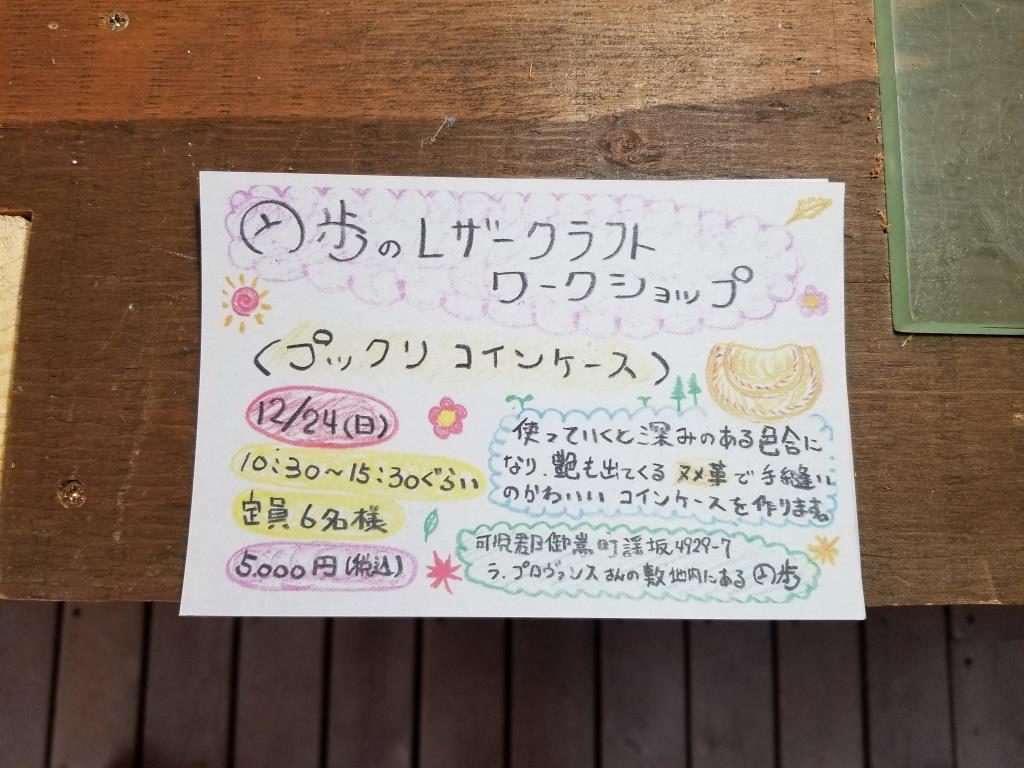 ㋣歩のLザークラフト
ワークショップ
(プックリ コインケース)
12/24(日)
10:30〜15:30ぐらい
定員6名様
5.000円(税込)
使っていくと深みのある色合に
なり、艶も出てくる ヌメ革で手縫い
のかわいい コインケースを作ります。
可児郡御嵩町謡坂4929-7
ラ.プロヴァンスさんの敷地内にある㋣歩